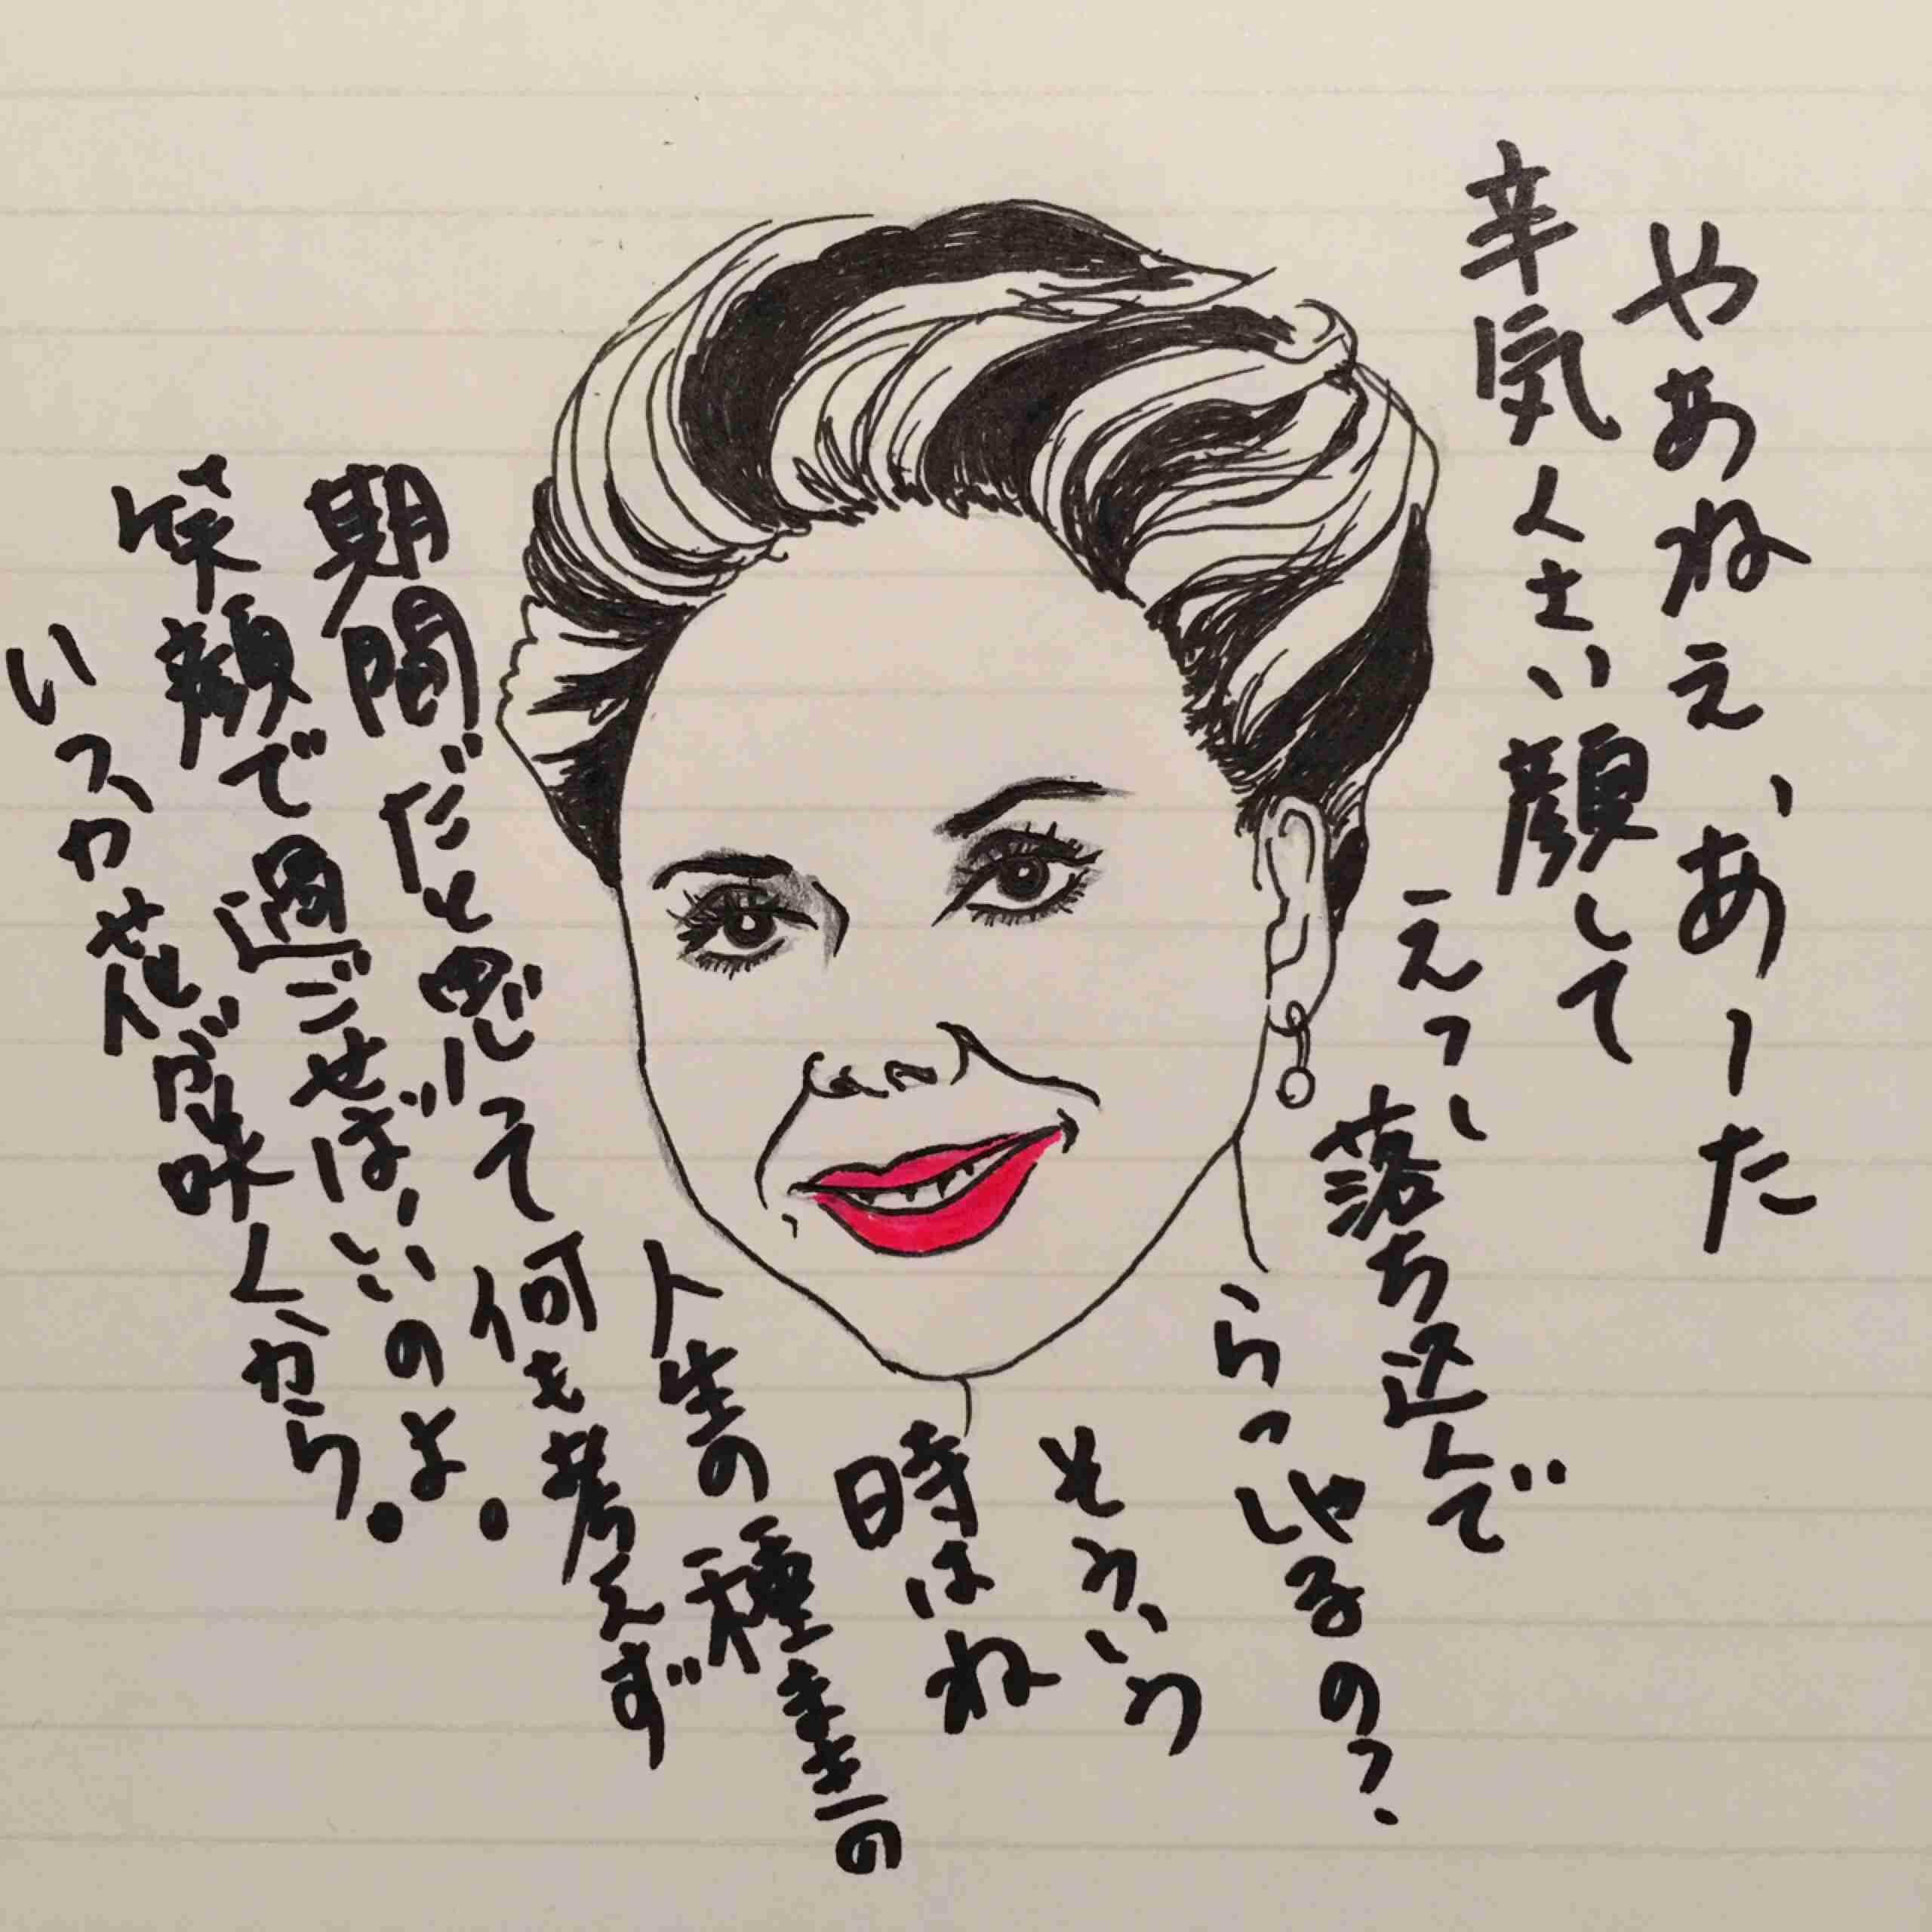 やあねえ、あーた
辛気くさい顔して
えっ、落ち込んで
らっしゃるの?
そういう
時はね
人生の種まきの
期間だと思って何も考えず
涼顔で過ごせばいいのよ。
いつか花が咲くから。